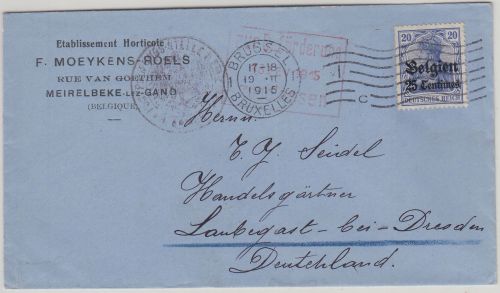 Etablissement Horticole
F. MOEYKENS-ROELS
RUE VAN GOETHEM
MEIRELBEKE-LEZ-GAND
(BELGIQUE)
BRUSSEL
17-18
1915
BRUXELLES
20 20
Belgien
25 Centimes
DEUTSCHES REICH
C
Herrn
T. J. Seidel
Handelsgärtner
Laubegast-bei-Dresden
Deutchland.